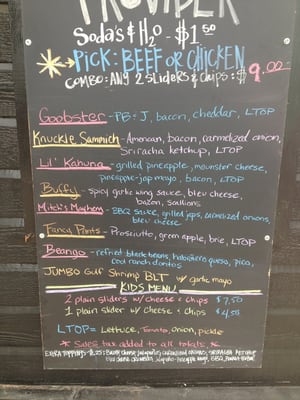 PROVIDER
Soda's & H2O - $1.50
PICK: BEEF or CHICKEN
COMBO: ANY 2 SLIDERS & CHIPS: $9.00
Goobster - PB & J, bacon, cheddar, LTOP
Knuckle Sammich - American, bacon, carmelized onion,
Sriracha ketchup, LTOP
Lil' Kahuna - grilled pineapple, meunster cheese,
pineapple-jap mayo, bacon, LTOP
Buffy - spicy garlic wing sauce, bleu cheese,
bacon, scallions
Mitch's Mayhem - BBQ sauce, grilled japs, carmelized onions,
bleu cheese
Fancy Pants - Prosciutto, green apple, brie, LTOP
Beango - refried black beans, habanero queso, pico,
cool ranch doritos
JUMBO Gulf Shrimp BLT w/ garlic mayo
KIDS MENU
2 plain sliders w/ cheese & chips $7.50
1 plain slider w/ cheese & chips $4.50
LTOP = Lettuce, Tomato, Onion, pickle
* Sales tax added to all totals *
EXTRA TOPPINGS